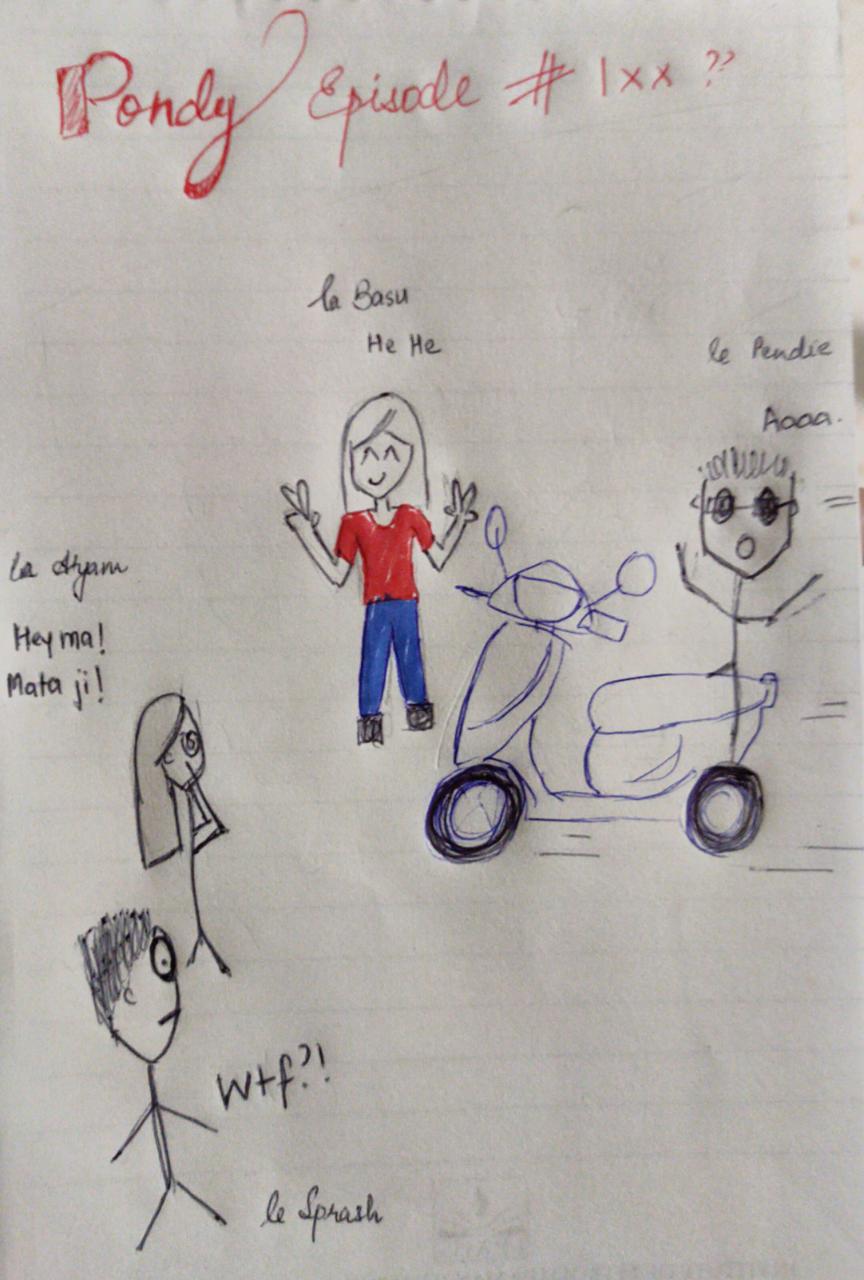 Pondy Episode # 1xx ??
la Basu
He He
le Pendie
Aaaa.
la Aryam
Hey ma!
Mata ji!
Wtf?!
le Sprash